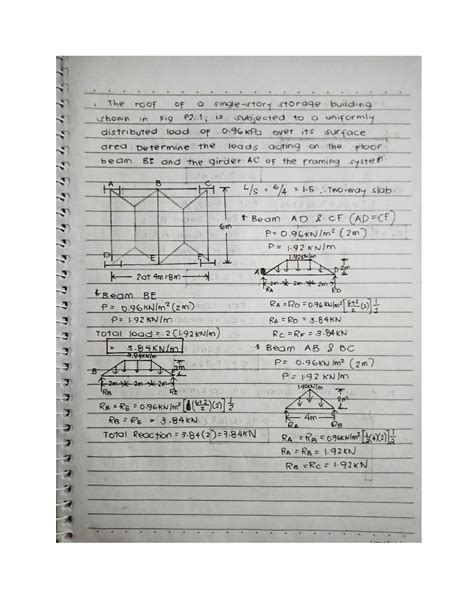 1. The roof of a single-story storage building
shown in Fig P2.1, is subjected to a uniformly
distributed load of 0.96 kPa over its surface
area. Determine the loads acting on the floor
beam BE and the girder AC of the framing system.
A B C
6m
D E F
2 at 4m = 8m
L/S = 6/4 = 1.5 ∴ Two-way slab
* Beam AD & CF (AD = CF)
P = 0.96 kN/m² (2m)
P = 1.92 kN/m
1.92 kN/m
A D 2m
2m 2m 2m
RA RD
RA = RD = 0.96 kN/m² [6+2/2 (2)] 1/2
RA = RD = 3.84 kN
RC = RF = 3.84 kN
* Beam BE
P = 0.96 kN/m² (2m)
P = 1.92 kN/m
Total load = 2(1.92 kN/m)
= 3.84 kN/m
3.84 kN/m
B 2m
2m 2m 2m
RB RE
RB = RE = 0.96 kN/m² [(6+2/2)(2)] 1/2
RB = RE = 3.84 kN
Total Reaction = 3.84(2) = 7.84 kN
* Beam AB & BC
P = 0.96 kN/m² (2m)
P = 1.92 kN/m
1.92 kN/m
2m
4m
RA RB
RA = RB = 0.96 kN/m² [1/2(4)(2)] 1/2
RA = RB = 1.92 kN
RB = RC = 1.92 kN